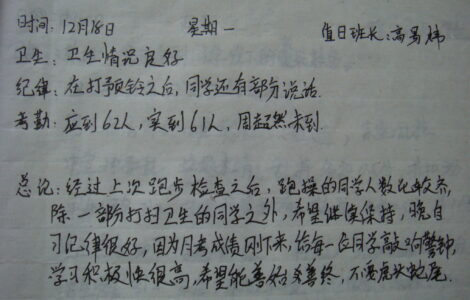 时间：12月18日 星期一 值日班长：高易炜
卫生：卫生情况良好
纪律：在打预铃之后，同学还有部分说话.
考勤：应到62人，实到61人，周超然未到.
总记：经过上次跑步检查之后，跑操的同学人数比较齐,
除一部分打扫卫生的同学之外，希望继续保持，晚自
习纪律很好，因为月考成绩刚下来，给每一位同学敲响警钟,
学习积极性很高，希望能善始善终，不要虎头蛇尾.